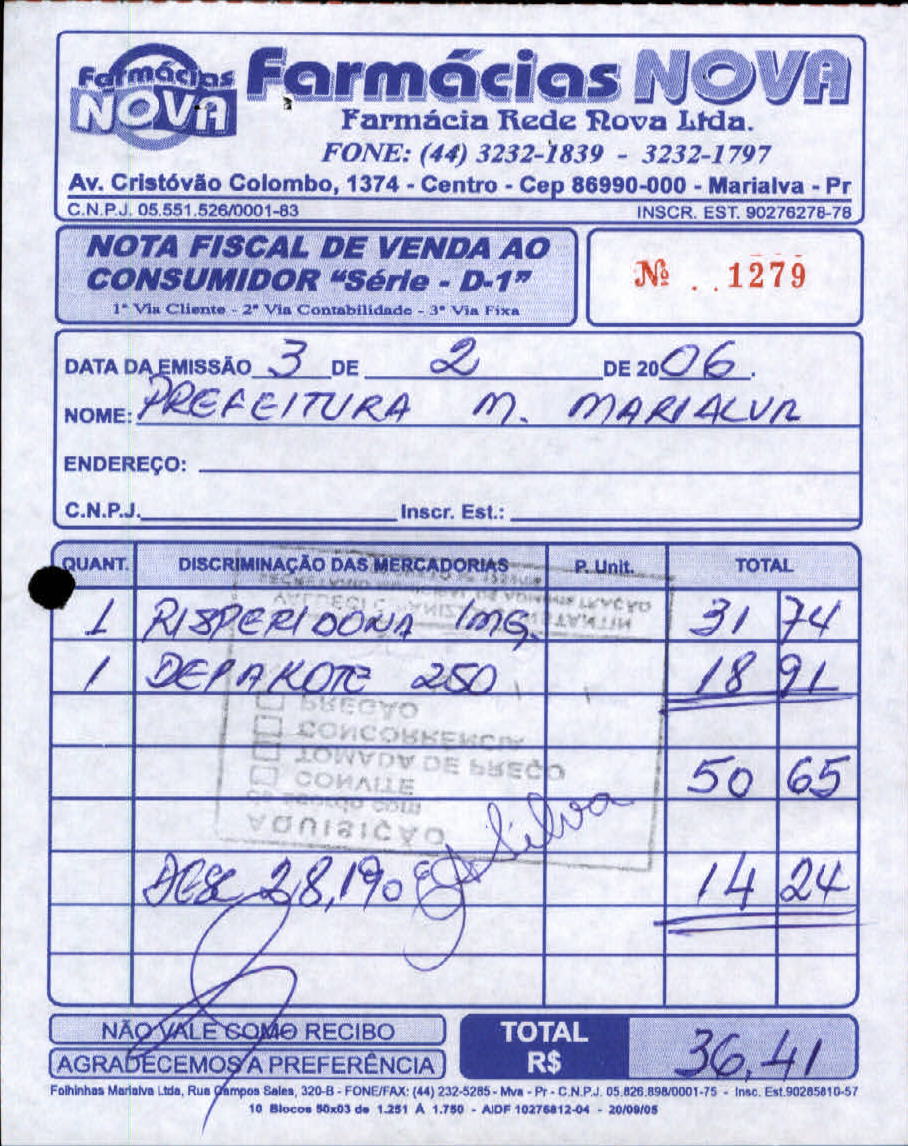 Farmácias NOVA
Farmácias NOVA
Farmácia Rede Nova Ltda.
FONE: (44) 3232-1839 - 3232-1797
Av. Cristóvão Colombo, 1374 - Centro - Cep 86990-000 - Marialva - Pr
C.N.P.J. 05.551.526/0001-83 INSCR. EST. 90276278-78
NOTA FISCAL DE VENDA AO
CONSUMIDOR "Série - D-1"
1ª Via Cliente - 2ª Via Contabilidade - 3ª Via Fixa
Nº 1279
DATA DA EMISSÃO 3 DE 2 DE 2006.
NOME: PREFEITURA M. MARIALVA
ENDEREÇO:
C.N.P.J. Inscr. Est.:
QUANT. DISCRIMINAÇÃO DAS MERCADORIAS P. Unit. TOTAL
1 RISPERIDONA 1MG. 31 74
1 DEPAKOTE 250 18 91
PREGÃO
CONCORRÊNCIA
TOMADA DE PREÇO
50 65
CONVITE
de acordo com
AQUISIÇÃO
Silva
DESC 28,1% 14 24
NÃO VALE COMO RECIBO
AGRADECEMOS A PREFERÊNCIA
TOTAL R$ 36,41
Folhinhas Marialva Ltda, Rua Campos Sales, 320-B - FONE/FAX: (44) 232-5285 - Mva - Pr - C.N.P.J. 05.826.898/0001-75 - Insc. Est.90285810-57
10 Blocos 50x03 de 1.251 À 1.750 - AIDF 10276812-04 - 20/09/05